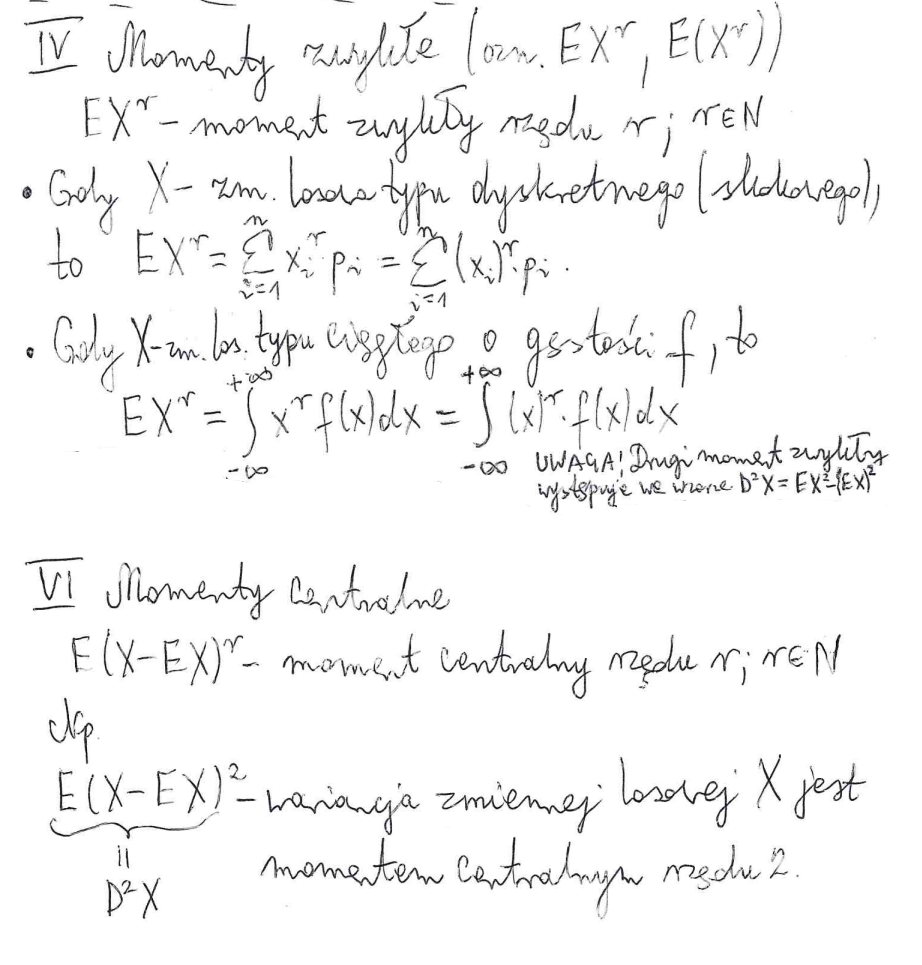 IV Momenty zwykłe (ozn. EXʳ, E(Xʳ))
EXʳ - moment zwykły rzędu r; r∈N
• Gdy X - zm. losowa typu dyskretnego (skokowego),
to EXʳ = ∑ⁿᵢ₌₁ xᵢʳ pᵢ = ∑ⁿᵢ₌₁ (xᵢ)ʳ·pᵢ.
• Gdy X-zm. los. typu ciągłego o gęstości f, to
EXʳ = ∫₋∞⁺∞ xʳ f(x)dx = ∫₋∞⁺∞ (x)ʳ·f(x)dx
UWAGA! Drugi moment zwykły
występuje we wzorze D²X = EX²-(EX)²
VI Momenty centralne
E(X-EX)ʳ - moment centralny rzędu r; r∈N
Np.
E(X-EX)² - wariancja zmiennej losowej X jest
momentem centralnym rzędu 2.
||
D²X